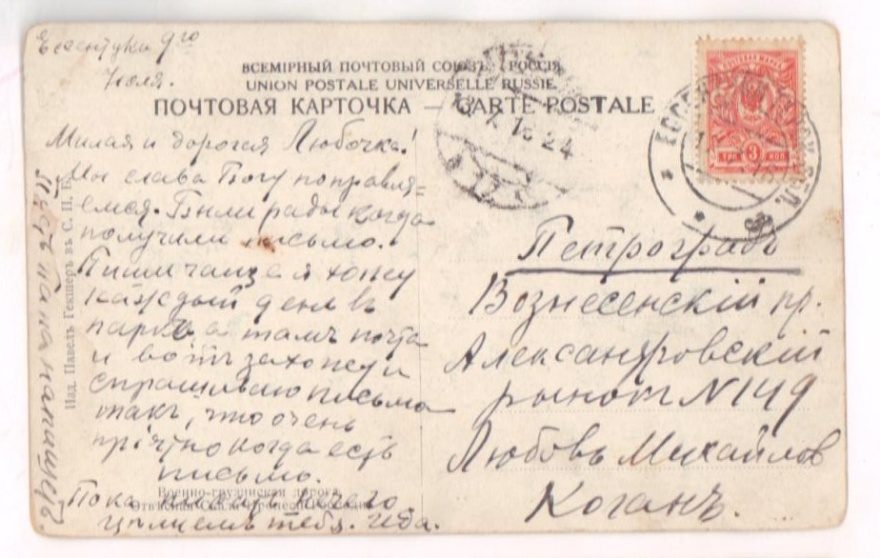 Ессентуки 9го
Июля.
ВСЕМІРНЫЙ ПОЧТОВЫЙ СОЮЗЪ. РОССІЯ.
UNION POSTALE UNIVERSELLE RUSSIE.
ПОЧТОВАЯ КАРТОЧКА — CARTE POSTALE
Милая и дорогая Любочка!
Мы слава Богу поправля=
емся. Были рады когда
получили письмо.
Пиши чаще я хожу
каждый день в
паркъ а тамъ почта
и вотъ захожу и
спрашиваю письма
такъ, что очень
пріятно когда есть
письмо.
Пока никому ничего.
целуемъ тебя.
Пусть папа напишетъ
Изд. Павелъ Гекшеръ въ С. П. Б.
Военно-грузинская дорога.
ТРИ 3 КОП
24
Петроградъ
Вознесенскій пр.
Александровскій
рынокъ N 149
Любовь Михайлов
Коганъ.